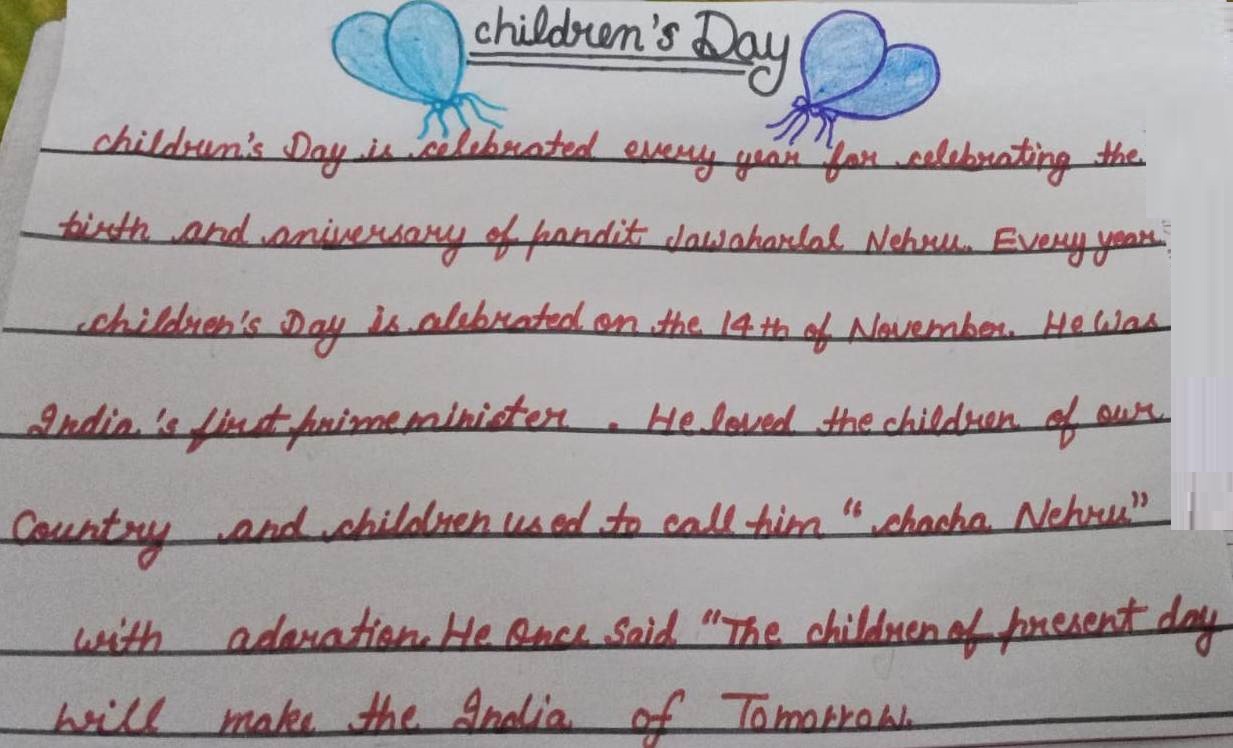 children's Day
children's Day is celebrated every year for celebrating the
birth and aniversary of pandit Jawaharlal Nehru. Every year
children's Day is alebrated on the 14th of November. He was
India's first prime minister. He loved the children of our
Country and children used to call him "chacha Nehru"
with adaration. He Once Said "The children of present day
will make the India of Tomorrow.